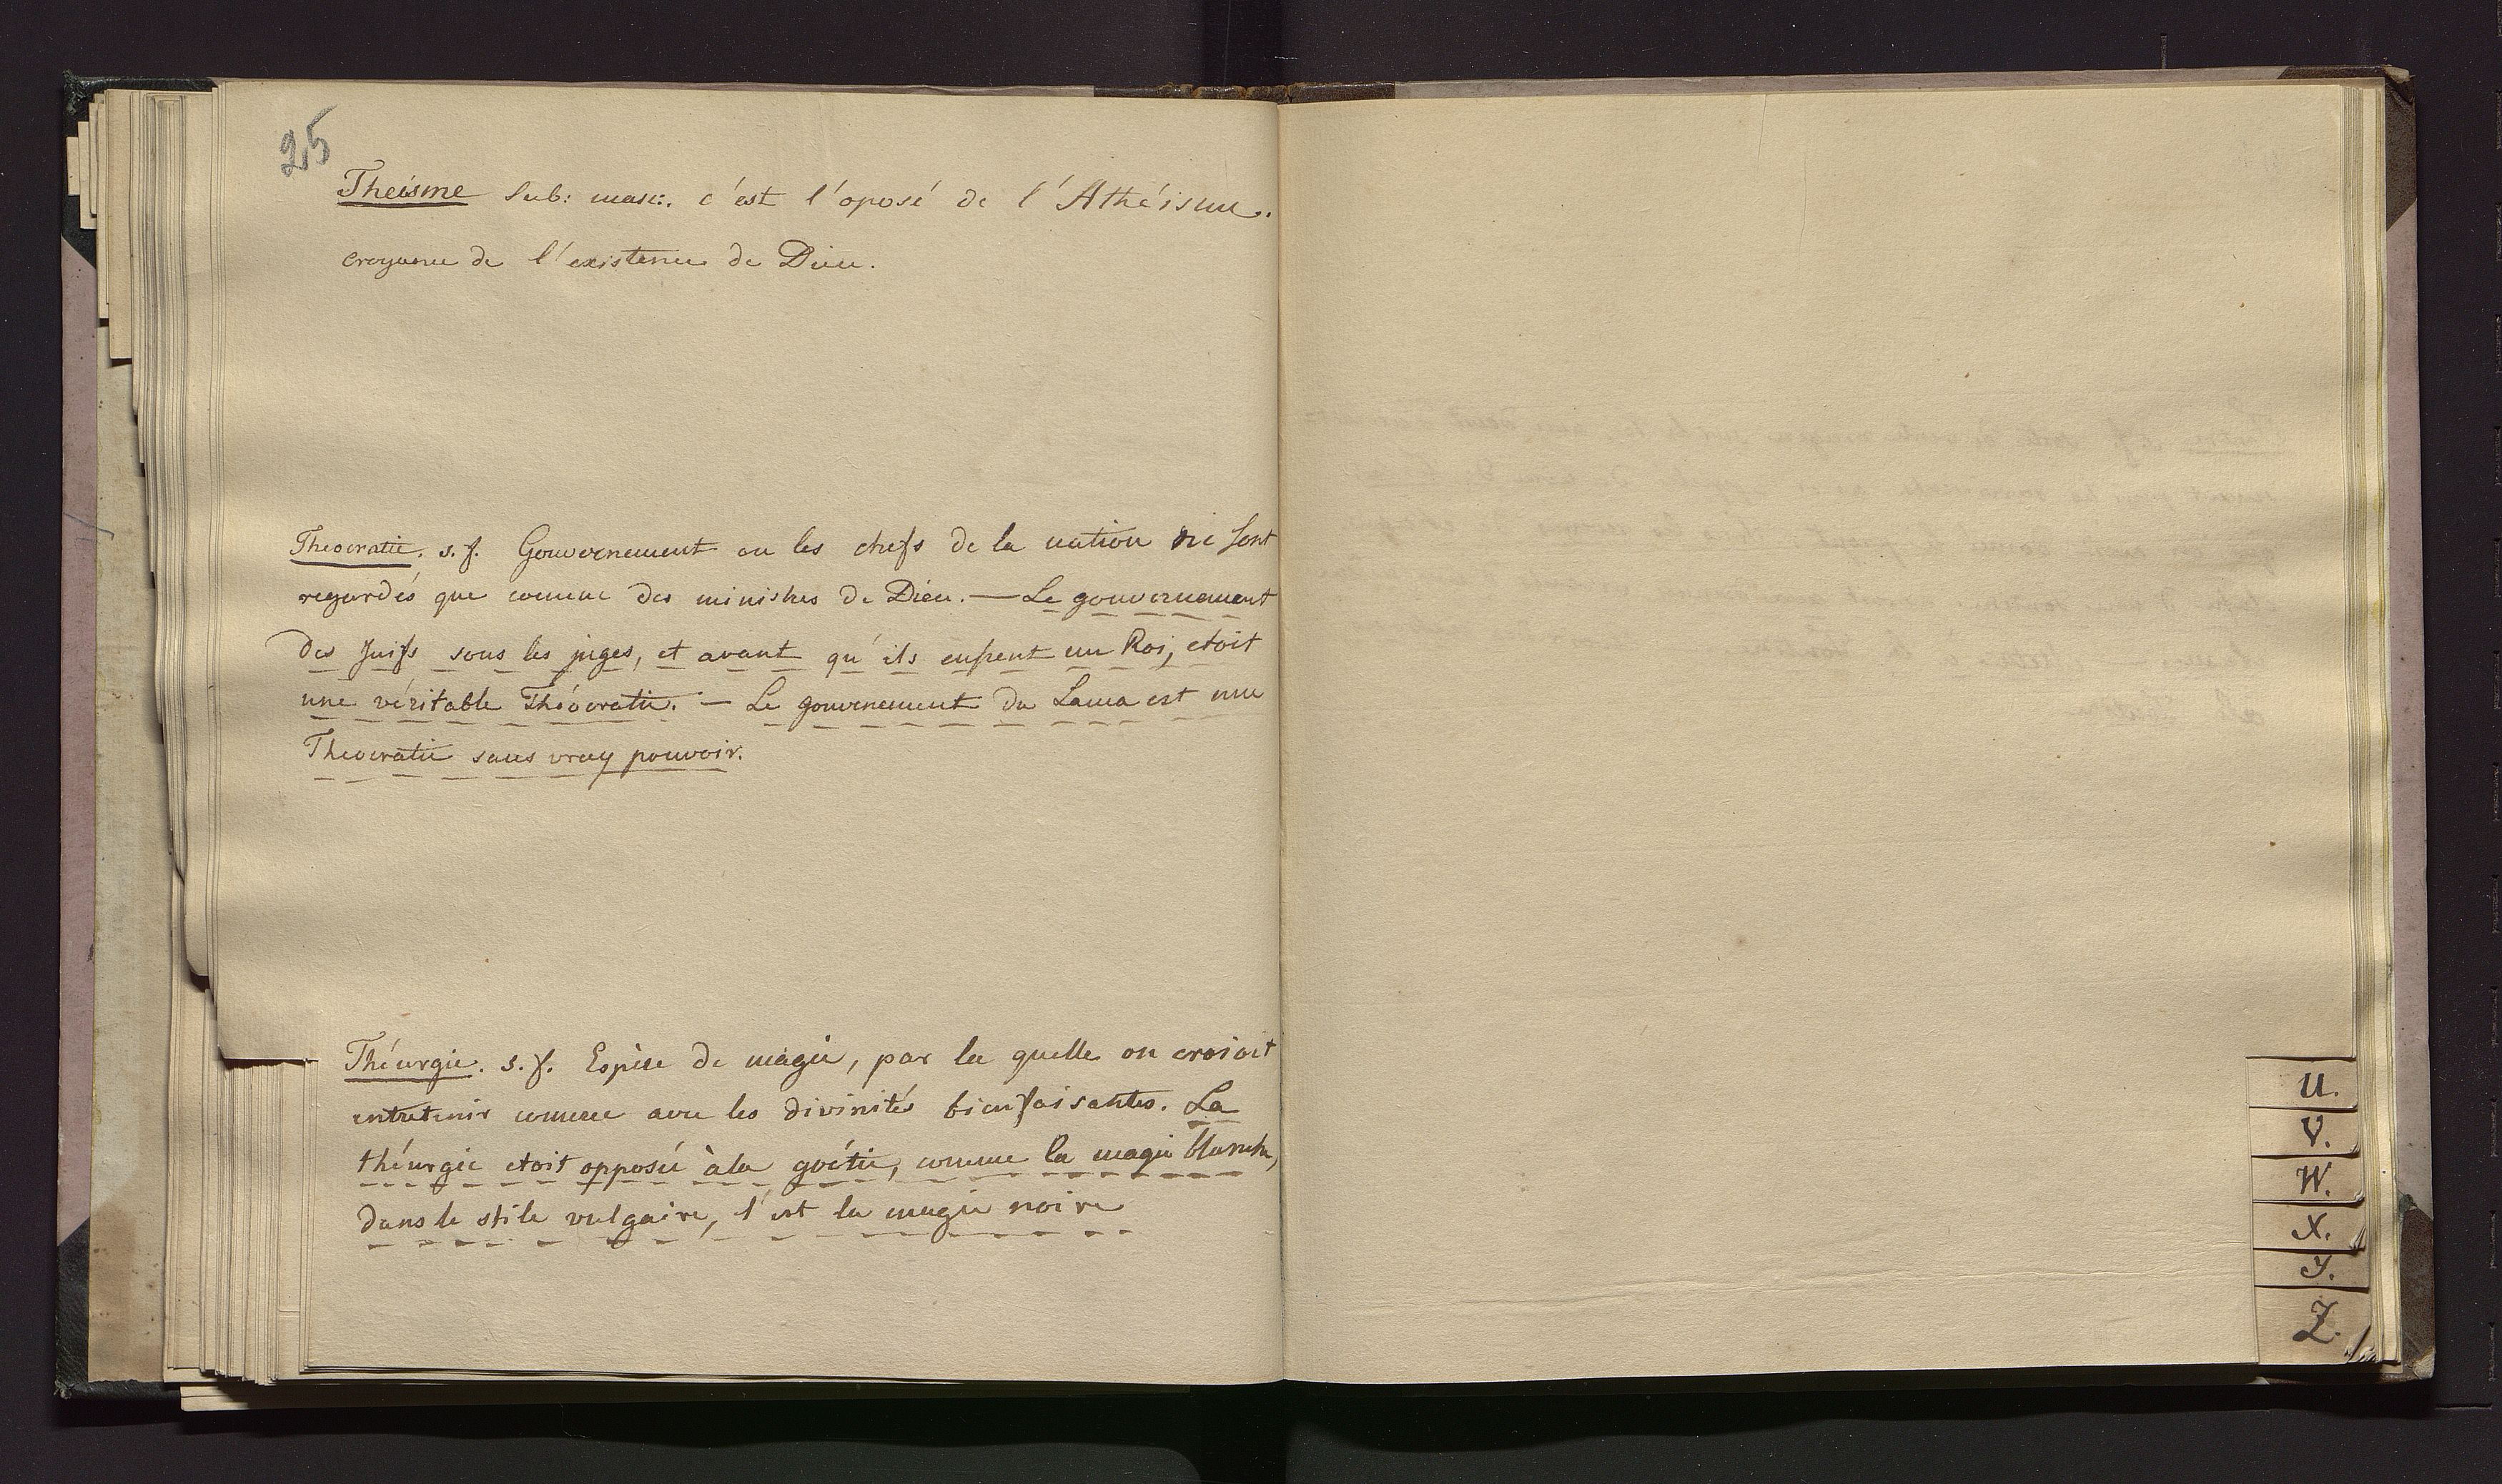 25
Theisme sub: masc:. c'est l'oposé de l'Athéisme.
croyance de l'existence de Dieu.
Theocratie. s.f. Gouvernement ou les chefs de la nation ne sont
regardés que comme des ministres de Dieu. — Le gouvernement
des Juifs sous les juges, et avant qu'ils eussent un Roi, etoit
une véritable Théocratie. — Le gouvernement du Lama est une
Theocratie sans vray pouvoir.
Théurgie. s.f. Espèce de magie, par la quelle on croioit
entretenir comerce avec les divinités bienfaisantes. La
théurgie etoit opposée à la goétie, comme la magie blanche,
dans le stile vulgaire, l'est la magie noire
U.
V.
W.
X.
Y.
Z.